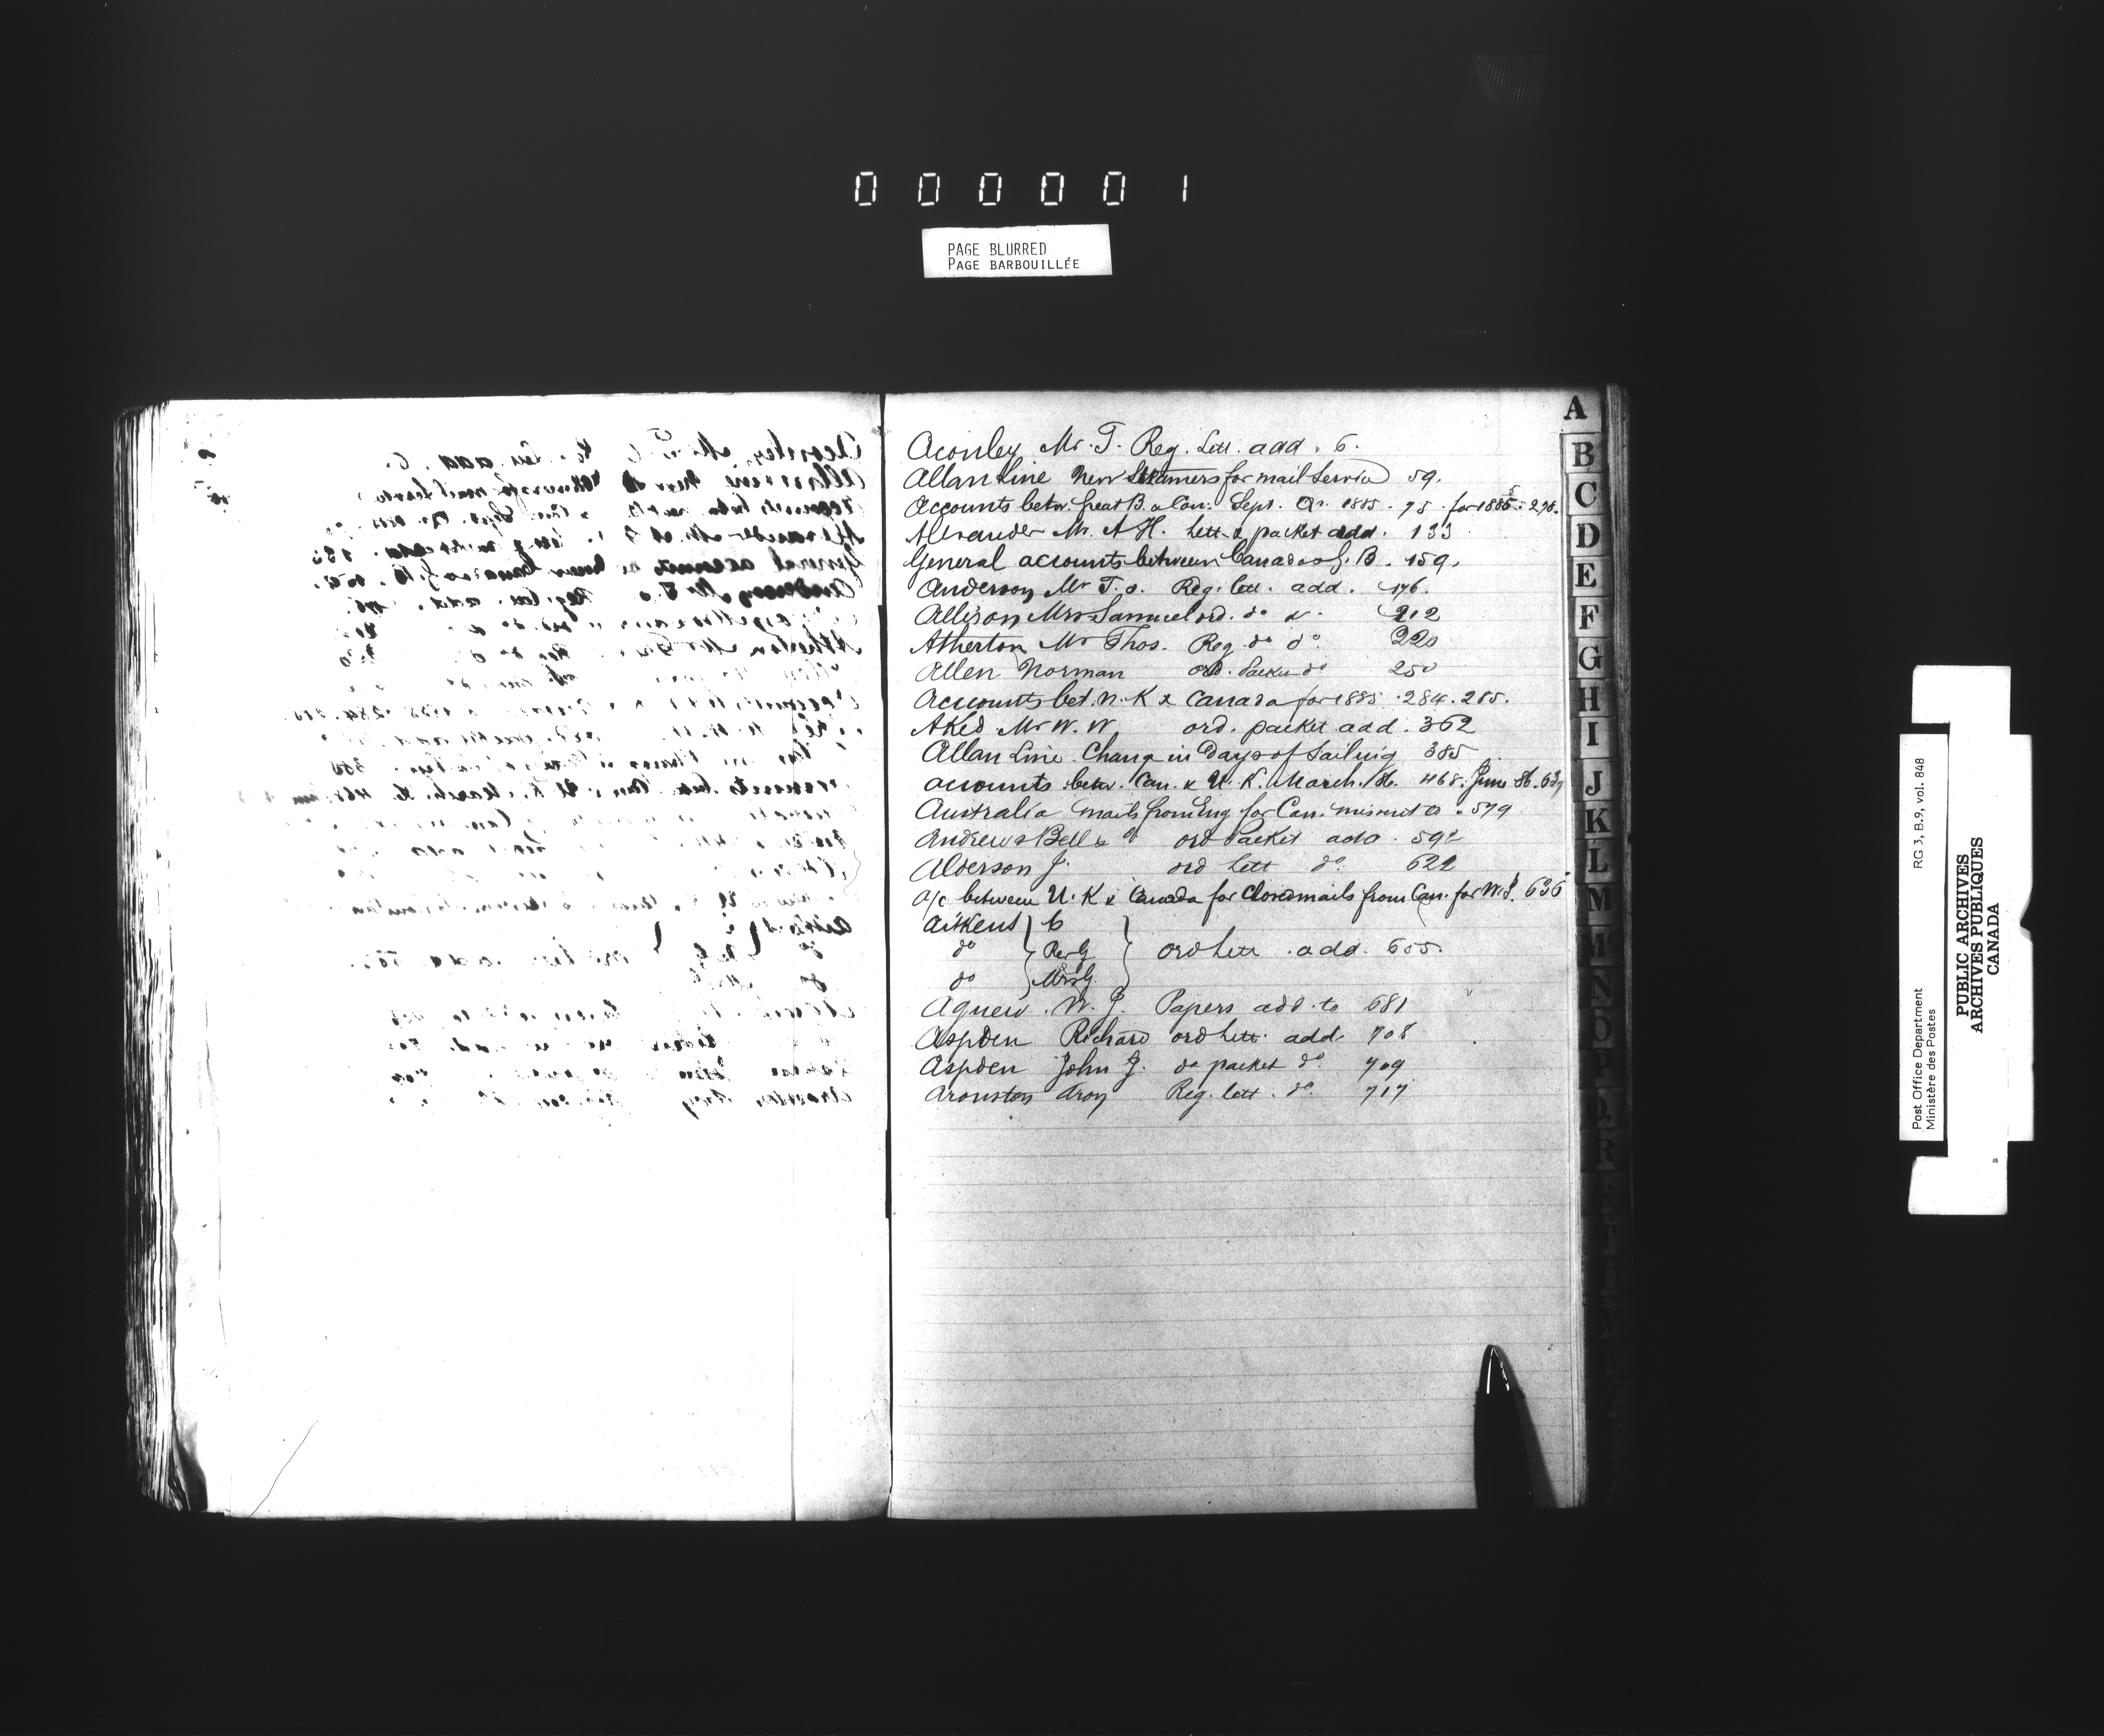 000001
PAGE BLURRED
PAGE BARBOUILLÉE
Aconley Mr. T. Reg. Lett. add. 6.
Allan Line New Steamers for mail Service 59.
Accounts betw. Great B. & Can. Sept. Qr. 1885. 75. for 1885 - 278.
Alexander Mr. A H. Lett. & packet add. 133
General accounts between Canada & G. B. 159.
Anderson Mr T. o. Reg. lett. add. 176.
Allison Mrs Samuel ord. do 212
Atherton Mr Thos. Reg. do do. 220
Allen Norman ord. Packet do 250
Accounts bet. U. K & Canada for 1885. 284. 285.
Aked Mr W. W. ord. packet add. 362
Allan Line. Change in Days of Sailing 385
accounts betw. Can. & U. K. March. 86. 468. June 86.
Australia mails from Eng for Can. missent to. 579
Andrews Bell & Co ord Packet add. 592
Alderson J. ord Lett do. 622
a/c between U. K & Canada for Closed mails from Can. for W. I. 636
Aitkens C
do Rev G ord Lett. add. 655.
do Mrs G.
Agnew. W. J. Papers add. to 681
Aspden Richard ord Lett. add. 708
Aspden John J. do packet do. 709
Aronston Aroy Reg. lett. do. 717
A
B
C
D
E
F
G
H
I
J
K
L
M
Mc
N
O
P
Q
R
Post Office Department RG 3, B.9, vol. 848
Ministère des Postes
PUBLIC ARCHIVES
ARCHIVES PUBLIQUES
CANADA